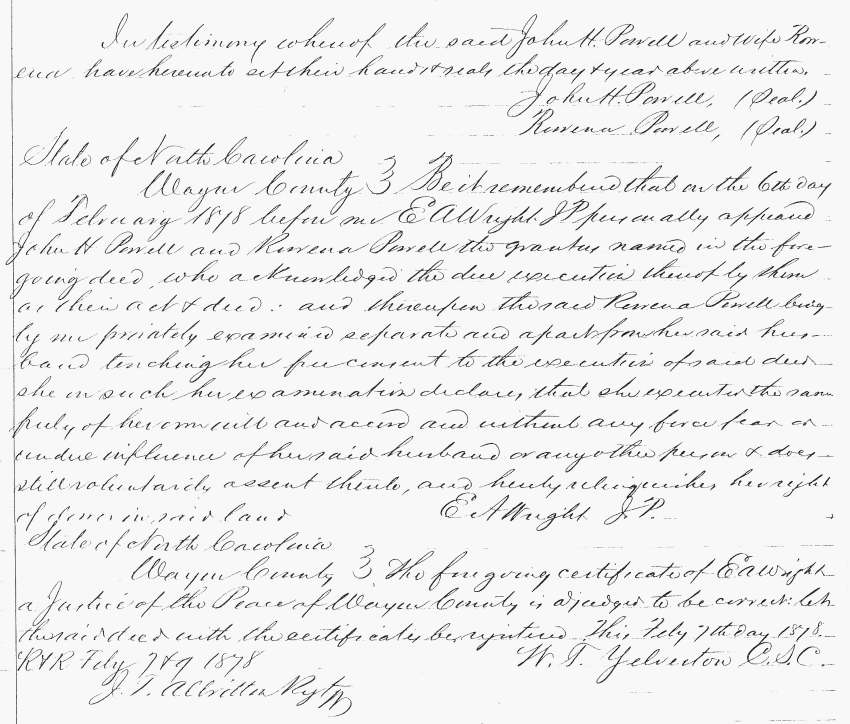 In testimony whereof the said John H. Powell and wife Row-
ena have hereunto set their hands & seals the day & year above written.
John H. Powell, (Seal.)
Rowena Powell, (Seal.)
State of North Carolina
Wayne County } Be it remembered that on the 6th day
of February 1878 before me E A Wright J P personally appeared
John H Powell and Rowena Powell the grantors named in the fore-
going deed, who acknowledged the due execution thereof by them
as their act & deed: and thereupon the said Rowena Powell being
by me privately examined separate and apart from her said hus-
band touching her free consent to the execution of said deed
she in such her examination declares that she executed the same
freely of her own will and accord and without any force fear or
undue influence of her said husband or any other person & does
still voluntarily assent thereto, and hereby relinquishes her right
of dower in said land E. A Wright J. P.
State of North Carolina
Wayne County } The foregoing certificate of E A Wright
a Justice of the Peace of Wayne County is adjudged to be correct: let
the said deed with the certificates be registered. This Feby 7th day 1878.
R & R Feby 7 & 9 1878 W. T. Yelverton C. S. C.
J. T. Albritton Regtr